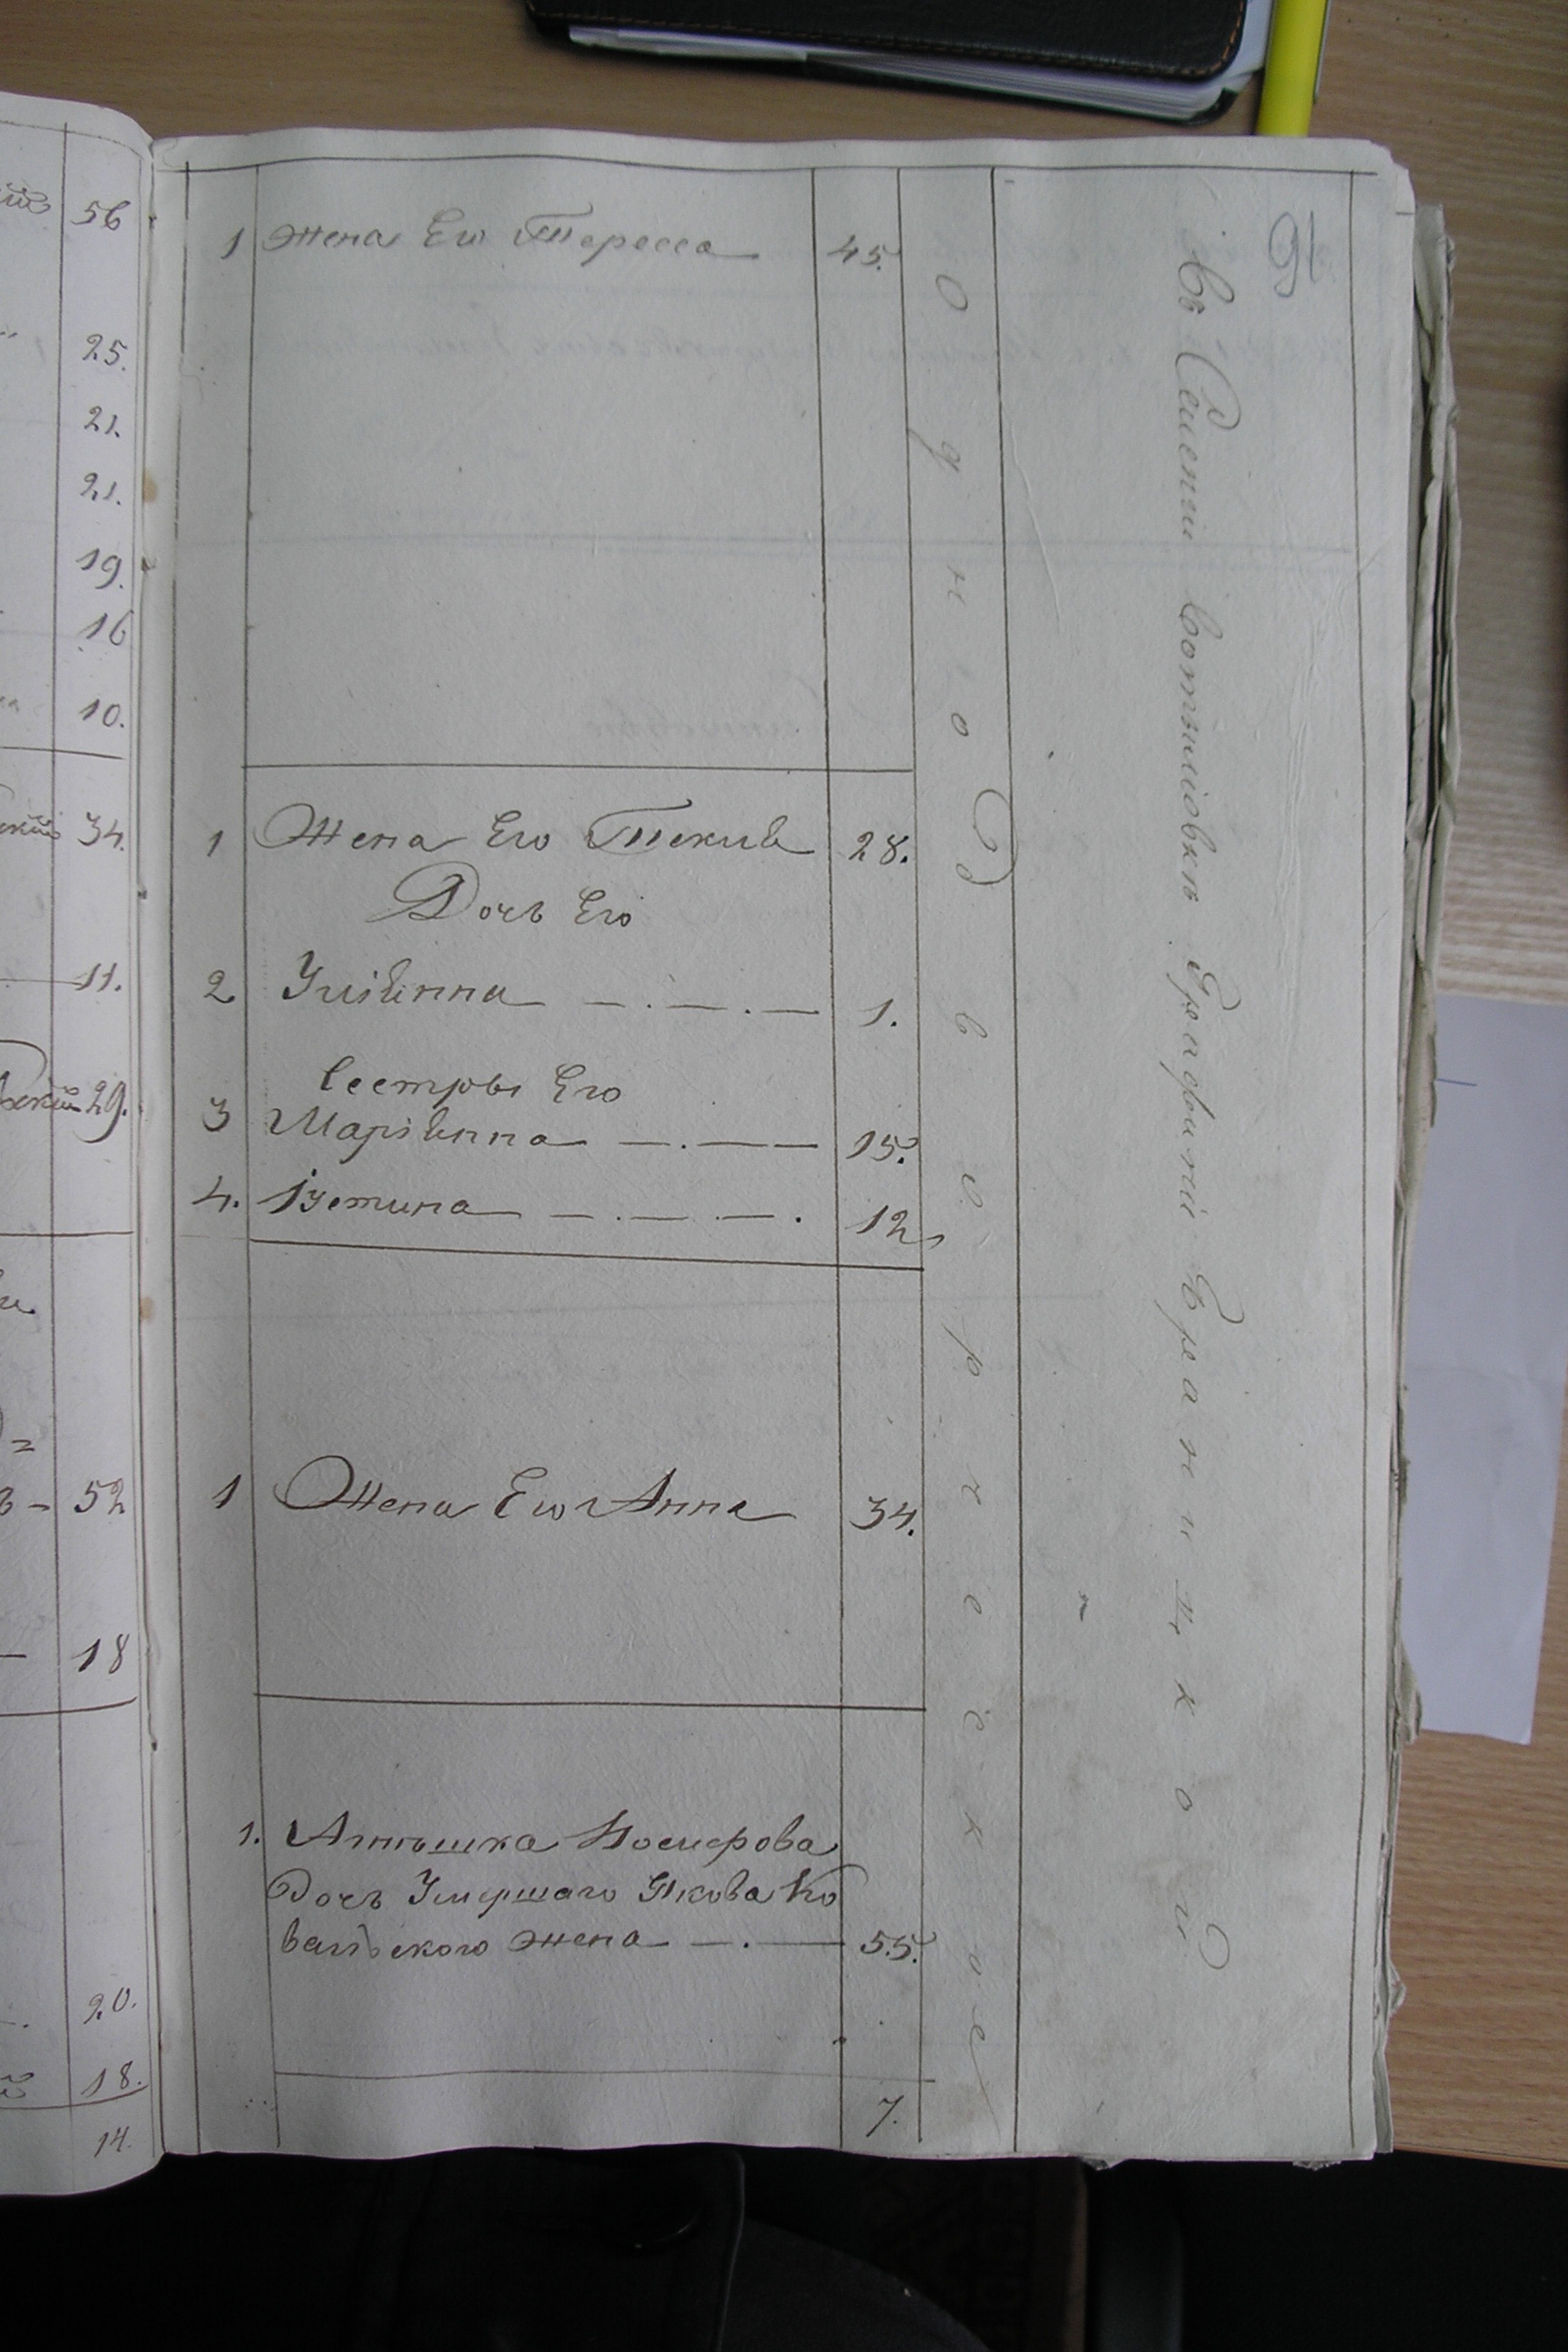 56
25.
21.
21.
19.
16
10.
34.
11.
29.
52
18
20.
18.
14.
91
1 Жена Его Тересса 45.
1 Жена Его Текля 28.
Дочь Его
2 Уліянна 1.
Сестры Его
3 Маріянна 15.
4. Іустина 12
1 Жена Его Анна 34.
1.
Дочь Умершаго Якова Ко
вальского жена 55.
7.
Однодворческое
Въ Селеніи Графини Браницкой